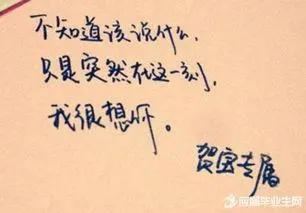 不知道该说什么,
只是突然在这一刻,
我很想你。
贺寔专属
应届毕业生网